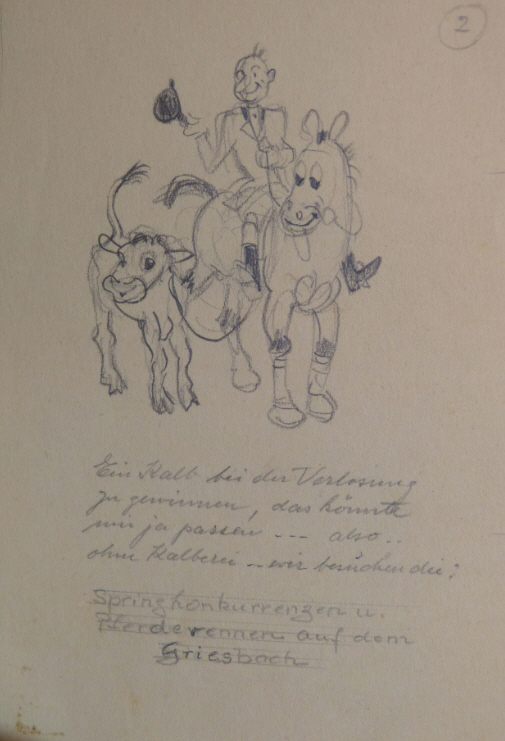 2
Ein Kalb bei der Verlosung
zu gewinnen, das könnte
mir ja passen --- also..
ohne Kalberei - wir besuchen die:
Springkonkurrenzen u.
Pferderennen auf dem
Griesbach